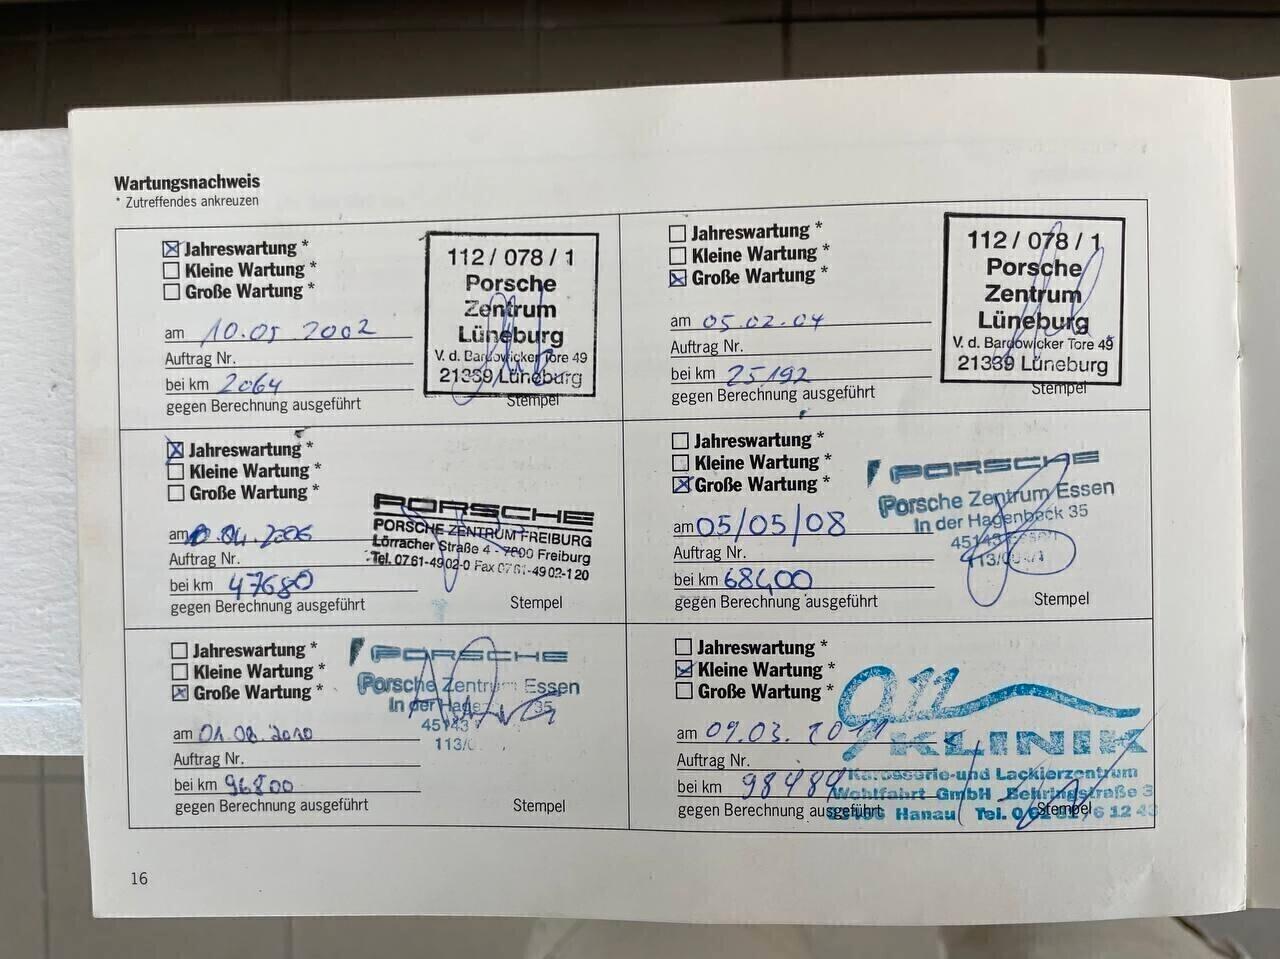 Wartungsnachweis
* Zutreffendes ankreuzen
Jahreswartung *
Kleine Wartung *
Große Wartung *
am 10.05 2002
Auftrag Nr.
bei km 2064
gegen Berechnung ausgeführt
112 / 078 / 1
Porsche
Zentrum
Lüneburg
V. d. Bardowicker Tore 49
21339 Lüneburg
Stempel
Jahreswartung *
Kleine Wartung *
Große Wartung *
am 05.02.04
Auftrag Nr.
bei km 25192
gegen Berechnung ausgeführt
112 / 078 / 1
Porsche
Zentrum
Lüneburg
V. d. Bardowicker Tore 49
21339 Lüneburg
Stempel
Jahreswartung *
Kleine Wartung *
Große Wartung *
am 04.2006
Auftrag Nr.
bei km 47680
gegen Berechnung ausgeführt
PORSCHE
PORSCHE ZENTRUM FREIBURG
Lörracher Straße 4 - 7800 Freiburg
Tel. 0761-4902-0 Fax 0761-4902-120
Stempel
Jahreswartung *
Kleine Wartung *
Große Wartung *
am 05/05/08
Auftrag Nr.
bei km 68400
gegen Berechnung ausgeführt
PORSCHE
Porsche Zentrum Essen
In der Hagenbeck 35
45143 Essen
Stempel
Jahreswartung *
Kleine Wartung *
Große Wartung *
am 01.08.2010
Auftrag Nr.
bei km 96800
gegen Berechnung ausgeführt
PORSCHE
Porsche Zentrum Essen
In der 35
45143
113/
Stempel
Jahreswartung *
Kleine Wartung *
Große Wartung *
am 09.03.2011
Auftrag Nr.
bei km 98484
gegen Berechnung ausgeführt
911
KLINIK
Karosserie-und Lackierzentrum
Wohlfahrt GmbH Behringstraße 3
Hanau Tel.
Stempel
16